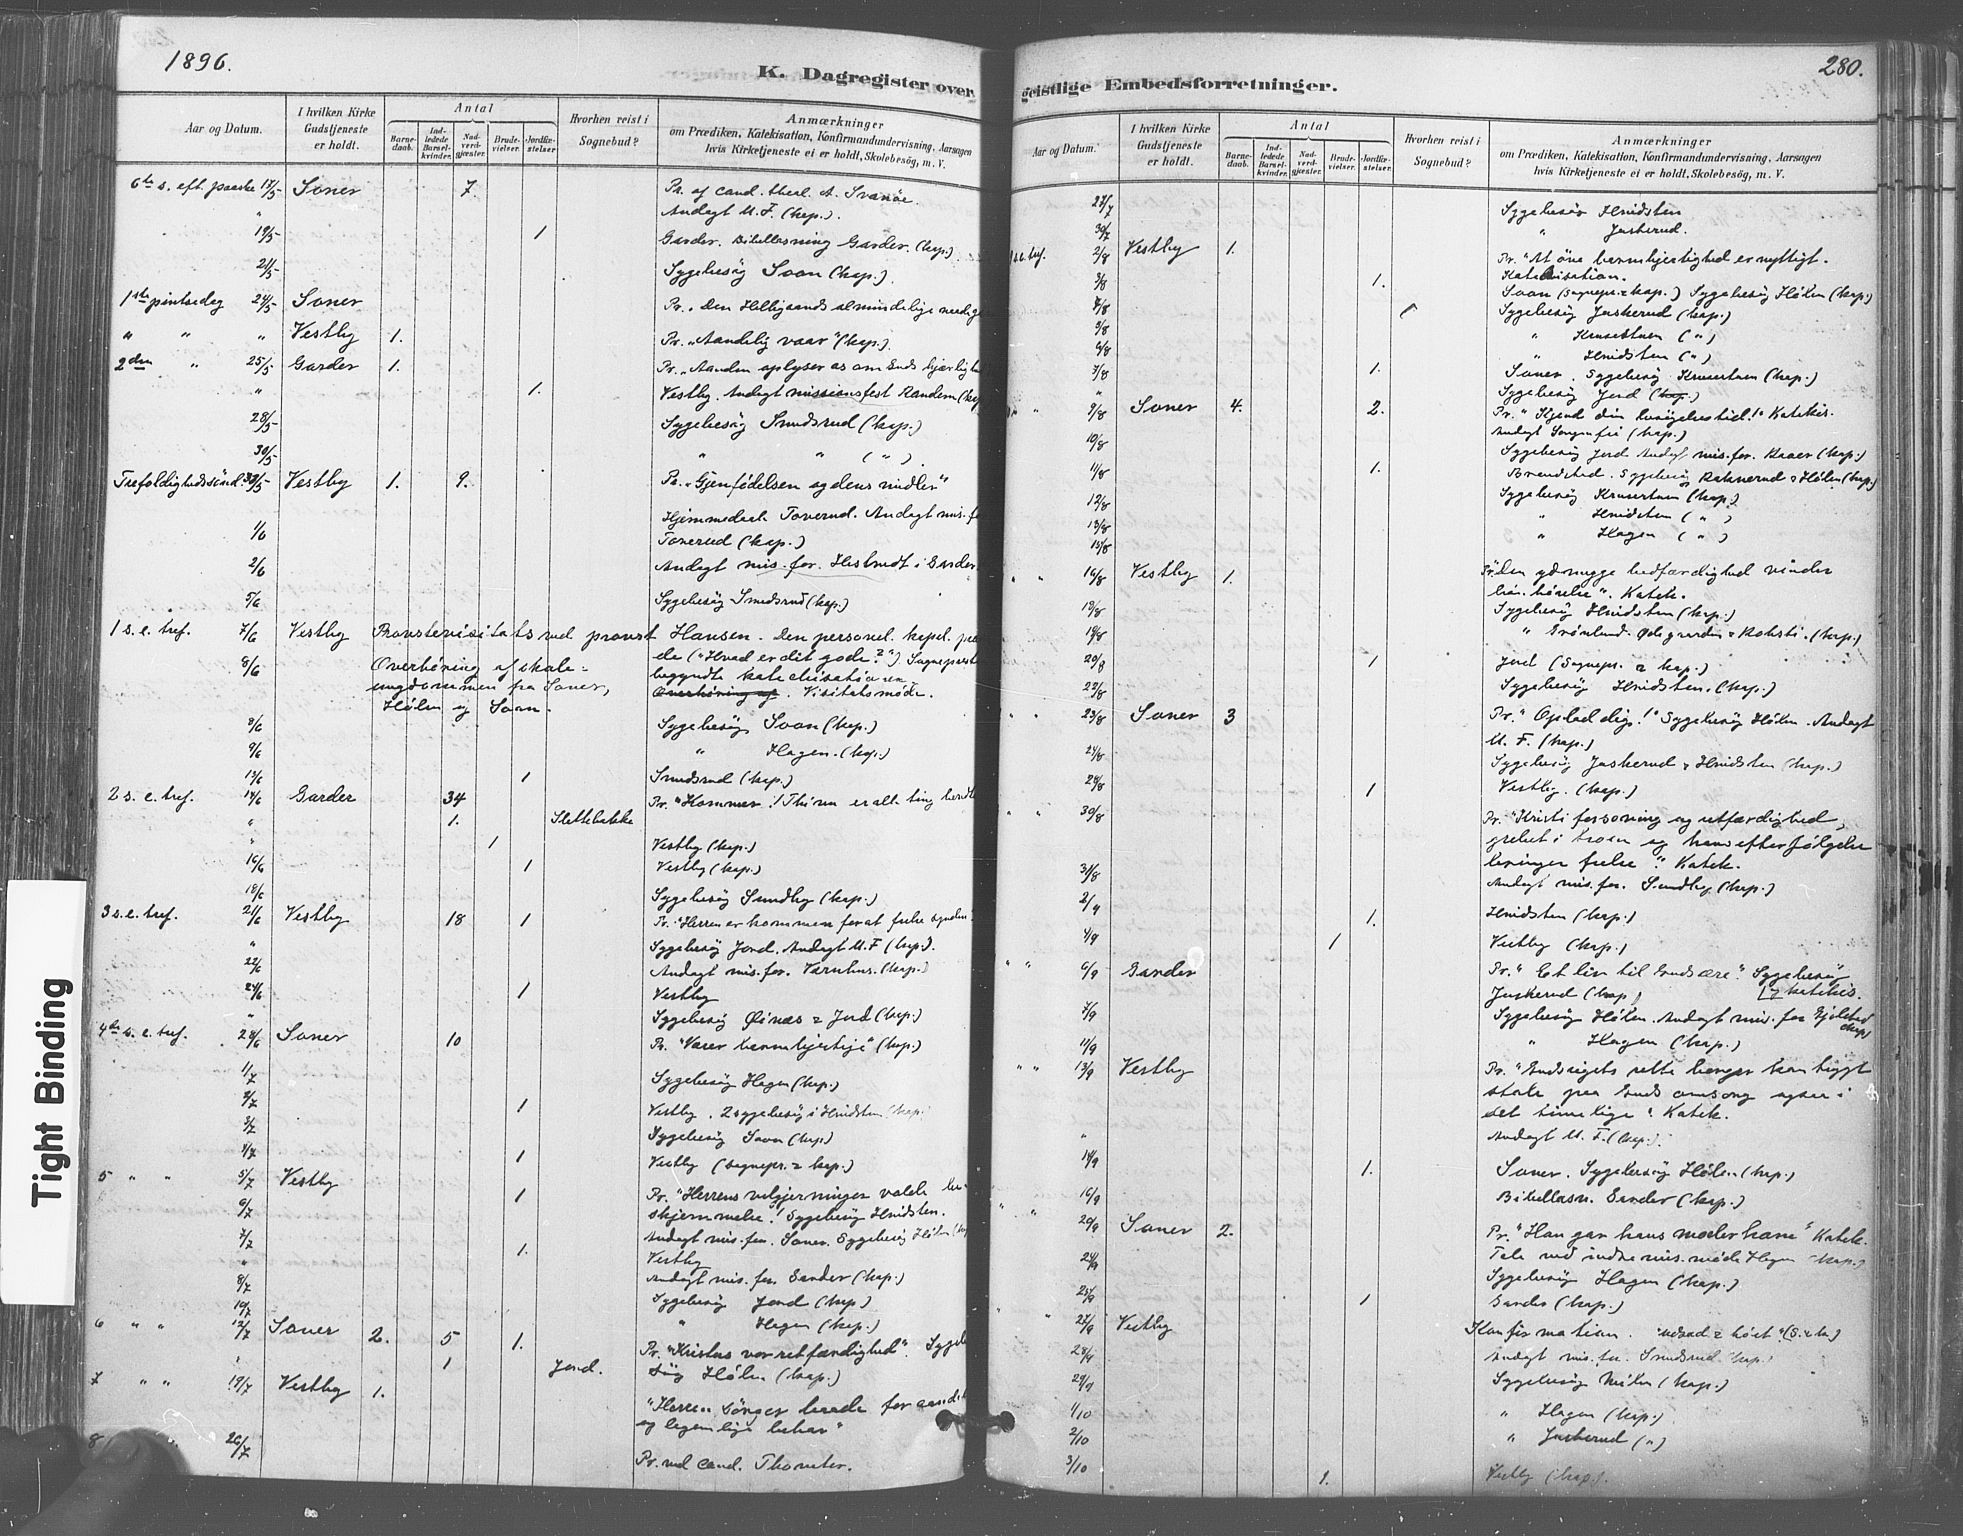 1896.
K. Dagregister over
Aar og Datum.
I hvilken Kirke Gudstjeneste er holdt.
Antal
Barne-daab.
Ind-ledede Barsel-kvinder.
Nad-verd-gjæster.
Brude-vielser.
Jordfæ-stelser
Hvorhen reist i Sognebud?
Anmærkninger
om Prædiken, Katekisation, Konfirmandundervisning, Aarsagen
hvis Kirketjeneste ei er holdt, Skolebesøg, m. V.
6te s. eft. paaske 17/5 Soner 7. Pr. af cand. theol. A. Svanøe.
" Andagt U. F. (kap.).
19/5 1 Garder. Bibellæsning Garder. (kap.)
21/5 Sygebesøg Soon (kap.).
1ste pintsedag 24/5 Soner Pr. „Den Helligaands almindelige
" " " Vestby 1. Pr. „Aandelig vaar" (kap.).
2den " 25/5 Garder 1. Pr. „Aanden oplyser os om Guds kjærlighed
" 1. Vestby. Andagt missionsfest Randem (kap
28/5 Sygebesøg Smedsrud (kap.)
30/5 " " ( " )
Trefoldighedssønd. 31/5 Vestby 1. 9. Pr. „Gjenfødelsen og dens midler"
Hjemmedaab Toverud. Andagt mis. fo
1/6 Toverud (kap.)
2/6 Andagt mis. for. i Garder.
5/6 Sygebesøg Smedsrud (kap.)
1 s. e. tref. 7/6 Vestby Provstevisitats ved provst Hansen. Den personel. kapel. præ
de („Hvad er dit gode?") Sognepresten
8/6 Overhøring af skole- begyndte katechisationen
ungdommen fra Soner, Overhøring af. Visitatsmøde.
Hølen og Soon.
8/6 Sygebesøg Soon (kap.)
9/6 " Hagen. (kap.)
13/6 1 Smedsrud (kap.)
2 s. e. tref. 14/6 Garder 34 Pr. "Kommer! Thi nu er alle ting beredte
" 1. Slettebakke
" 1 Vestby (kap.)
16/6 1 Vestby (kap.)
18/6 Sygebesøg Sundby (kap.)
3 s. e. tref. 21/6 Vestby 18 1 Pr. "Herren er kommen for at frelse syndere
" Sygebesøg Jord. Andagt U. F. (kap.).
22/6 Andagt mis. for. Varnhus. (kap.)
24/6 1 Vestby
" Sygebesøg Øinæs & Jord (kap.)
4de s. e. tref. 28/6 Soner 10 Pr. "Værer barmhjertige" (kap.)
1/7 Sygebesøg Hagen (kap.)
2/7 1 Vestby. 2 sygebesøg i Hvidsten (kap.
3/7 Sygebesøg Soon (kap)
4/7 1 Vestby (sognepr. & kap.)
5 " " 5/7 Vestby Pr. "Herrens velgjerninger volde be-
6/7 1 skjemmelse! Sygebesøg Hvidsten.
7/7 Andagt mis. for. Soner. Sygebesøg Hølen (kap
" 1. Vestby
8/7 Andagt mis. for. Garder (kap.)
10/7 Sygebesøg Jord (kap)
6 " " 12/7 Soner 2. 5 1. " Hagen (kap.)
Pr. "Kristus vor retfærdighed". Sygebe
" 1 Jord. søg Hølen (kap.)
7 " " 19/7 Vestby 1.
"Herren sørger baade for aandelig
og legemlige behov"
8 " 26/7 Pr. ved cand. Thomter.
280.
geistlige Embedsforretninger.
Aar og Datum.
I hvilken Kirke Gudstjeneste er holdt.
Antal
Barne-daab.
Ind-ledede Barsel-kvinder.
Nad-verd-gjæster.
Brude-vielser.
Jordfæ-stelser
Hvorhen reist i Sognebud?
Anmærkninger
om Prædiken, Katekisation, Konfirmandundervisning, Aarsagen
hvis Kirketjeneste ei er holdt, Skolebesøg, m. V.
27/7 Sygebesøg Hvidsten
30/7 " Jaskerud.
s. e. tref. 2/8 Vestby 1. Pr. "At øve barmhjertighed er nyttigt.
Katekisation.
3/8 1. Soon (Sognepr. & kap.) Sygebesøg Hølen (kap.)
Sygebesøg Jaskerud (kap.)
" Krusetuen ( " )
6/8 " Hvidsten ( " )
7/8 1. Soner. Sygebesøg Krusetuen (kap.)
" Sygebesøg Jord (kap.)
" " 9/8 Soner 4. 2. Pr. "Kjend din besøgelsestid!" Katekis.
Andagt Sorgenfri (kap.)
10/8 Sygebesøg Jord Andagt mis. for. Kraer (kap.)
11/8 1. Brandstad. Sygebesøg Raknerud & Hølen (kap.)
12/8 Sygebesøg Krusetuen (kap.)
13/8 " Hvidsten ( " )
15/8 " Hagen ( " )
" " 16/8 Vestby 1. Pr. "Den ydmyge bodfærdighed vinder
bøn. hørelse". Katek.
Sygebesøg Hvidsten (kap.)
19/8 " Grønlund. (kap.)
20/8 1 Jord (Sognepr. & kap.)
22/8 Sygebesøg Hvidsten. (kap.)
" " 23/8 Soner 3 Pr. "Oplad dig!" Sygebesøg Hølen. Andagt
U. F. (kap.)
24/8 Sygebesøg Jaskerud & Hvidsten (kap.)
1 Vestby. (kap.)
" " 30/8 Pr. "Kristi forsoning og retfærdighed,
grebet i troen og hans efterfølgelse
bringer frelse". Katek.
31/8 Andagt mis. for. Sundby (kap.)
2/9 1. Hvidsten (kap.)
4/9 1 Vestby (kap.)
" " 6/9 Garder Pr. "Et liv til Guds ære". Sygebesøg
Jaskerud (kap) [& katekis.
7/9 Sygebesøg Hølen. Andagt mis. for (kap)
11/9 " Hagen (kap.)
" " 13/9 Vestby Pr. "Gudsrigets rette borger kan trygt
stole paa Guds omsorg ogsaa i
det timelige". Katek.
" Andagt U. F. (kap.).
14/9 1. Soner. Sygebesøg Hølen (kap.)
16/9 Bibellæsn. Garder (kap.)
" " 20/9 Soner 2. Pr. "Han gav hans moder ham" Katek.
Tale ved indre mis. møde Hagen (kap.)
24/9 Sygebesøg Hagen (kap.)
25/9 1 Garder (kap.)
" " 27/9 Vestby Konfirmation. "Udsæd & høst". (S. & k.)
28/9 Andagt mis. for. Smedsrud kap.)
29/9 Sygebesøg Mølen (kap.)
1/10 " Hagen (kap.)
2/10 " Jaskerud ( " )
3/10 1. Vestby (kap.).
Tight Binding